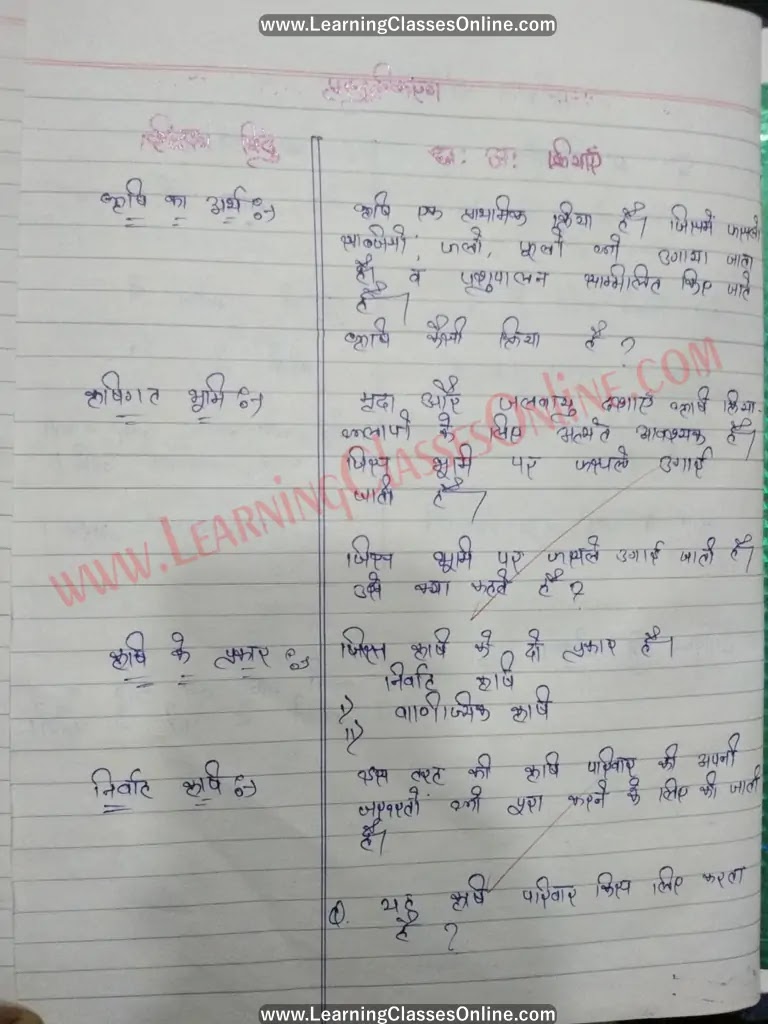 www.LearningClassesOnline.com
प्रस्तुतिकरण
शिक्षण बिंदु
छा. अ. क्रियाएं
कृषि का अर्थ :-
कृषि एक प्राथमिक क्रिया है। जिसमें फसलों
सब्जियों, फलों, फूलों को उगाया जाता
है। व पशुपालन सम्मिलित किए जाते
है।
कृषि कैसी क्रिया है ?
कृषिगत भूमि :-
मृदा और जलवायु दशाएं कृषि क्रिया-
कलापों के लिए अत्यंत आवश्यक है।
जिस भूमि पर फसले उगाई
जाती है।
जिस भूमि पर फसले उगाई जाती है।
उसे क्या कहते है ?
कृषि के प्रकार :-
जिस कृषि के दो प्रकार है।
निर्वाह कृषि
i) वाणिज्यिक कृषि
ii)
निर्वाह कृषि :-
इस तरह की कृषि परिवार की अपनी
जरूरतों को पूरा करने के लिए की जाती
है।
Q. यह कृषि परिवार किस लिए करता
है ?
www.LearningClassesOnline.com
www.LearningClassesOnline.com